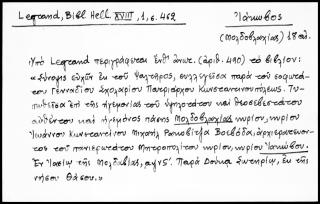 Legrand, Bibl. Hell. XVIII, 1, σ. 462
Ἰάκωβος
(Μολδοβλαχίας) 18 αἰ.
Ὑπὸ Legrand περιγράφεται ἐνθ' ἀνωτ. (ἀριθ. 490) τὸ βιβλίον:
«Σύνοψις εὐχῶν ἐκ τοῦ Ψαλτῆρος, συλλεγεῖσα παρὰ τοῦ σοφωτά-
του Γενναδίου Σχολαρίου Πατριάρχου Κωνσταντινουπόλεως. Τυ-
πωθεῖσα ἐπὶ τῆς ἡγεμονίας τοῦ ὑψηλοτάτου καὶ θεοσεβεστάτου
αὐθέντου καὶ ἡγεμόνος πάσης Μολδοβλαχίας κυρίου, κυρίου
Ἰωάννου Κωνσταντίνου Μιχαὴλ Ρακοβίτζα Βοεβόδα, ἀρχιερατεύον-
τος τοῦ πανιερωτάτου Μητροπολίτου κυρίου, κυρίου Ἰακώβου.
Ἐν Ἰασίῳ τῆς Μολδαβίας, Παρὰ Δούκα Σωτηρίῳ, ἐκ τῆς
νήσου Θάσου.»